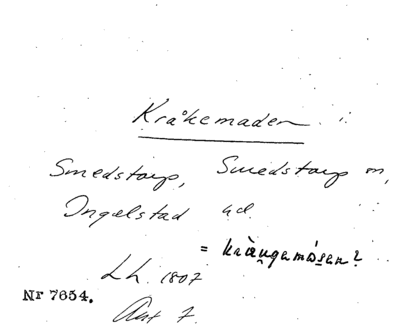 Kråkemaden
Smedstorp, Smedstorp sn,
Ingelstad hd.
= kràŋgamósen?
Lh. 1807
Nr 7654.
Akt 7.